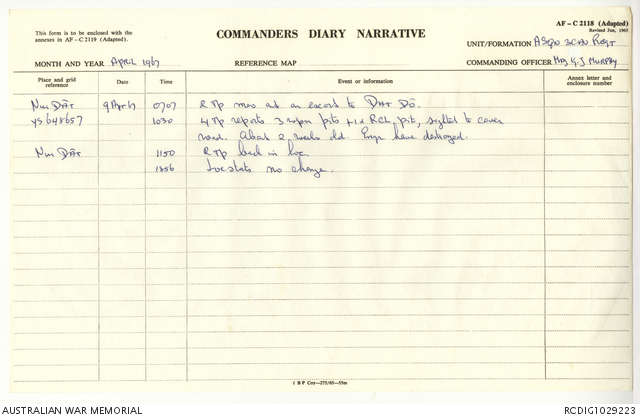 AF – C 2118 (Adapted)
Revised Jun, 1965
This form is to be enclosed with the
annexes in AF – C 2119 (Adapted).
COMMANDERS DIARY NARRATIVE
UNIT/FORMATION A Sqn 3 CAV Regt
MONTH AND YEAR APRIL 1967
REFERENCE MAP
COMMANDING OFFICER Maj G.J. MURPHY
Place and grid reference
Date
Time
Event or information
Annex letter and enclosure number
NUI DAT 9 Apr 67 0707 2 Tp mov out on escort to DAT DO.
YS 648657 1030 4 Tp reports 3 wpn pits + 1 x RCL pit, sighted to cover
road. About 2 weeks old. Engr have destroyed.
NUI DAT 1150 2 Tp back in loc
1856 Locstats no change.
1 BP Coy—275/65—55m
AUSTRALIAN WAR MEMORIAL
RCDIG1029223